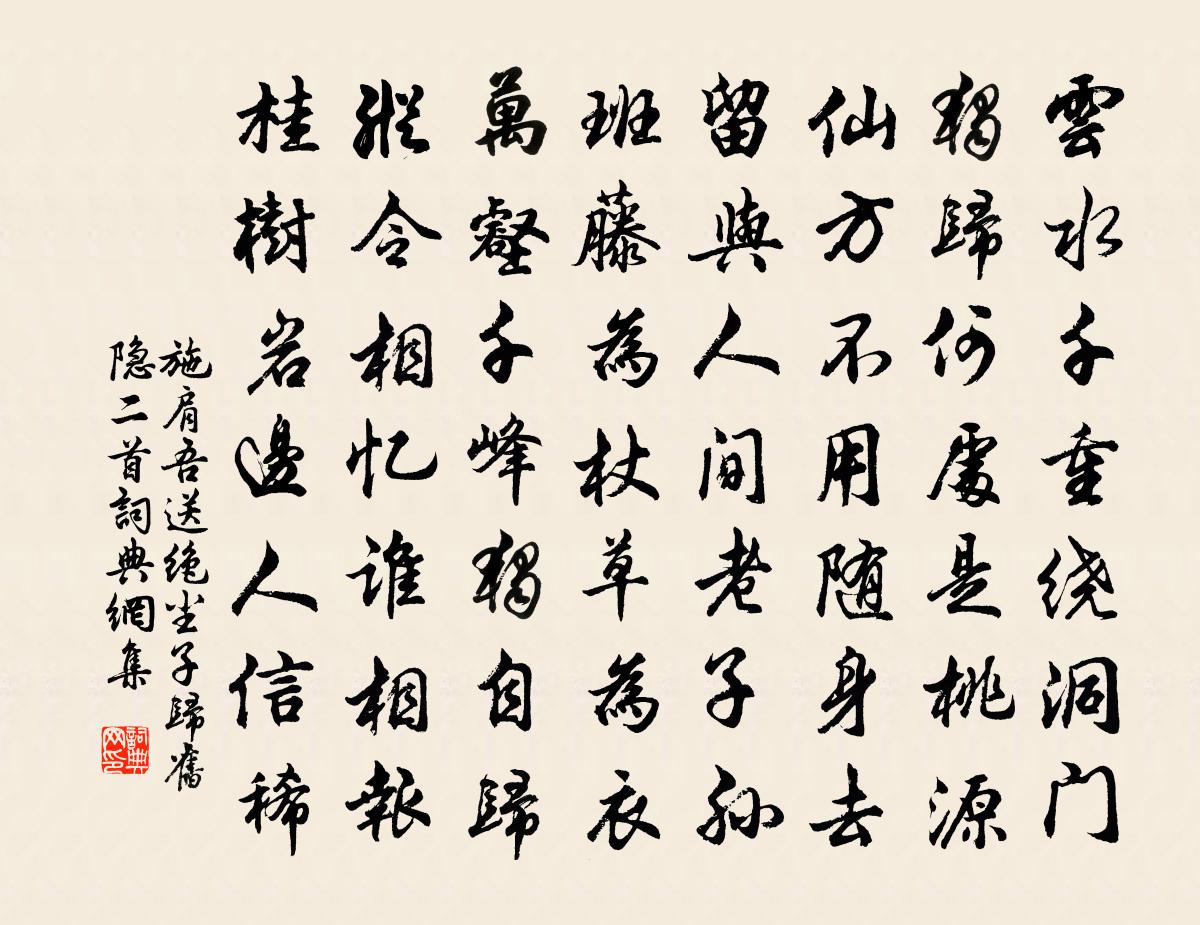 雲水千重绕洞门
獨歸何處是桃源
仙方不用随身去
留與人间老子孙
班藤為杖草為衣
萬壑千峰獨自歸
縱令相忆谁相報
桂樹岩邊人信稀
施肩吾送绝尘子歸舊
隐二首詞典網集
詞典网印